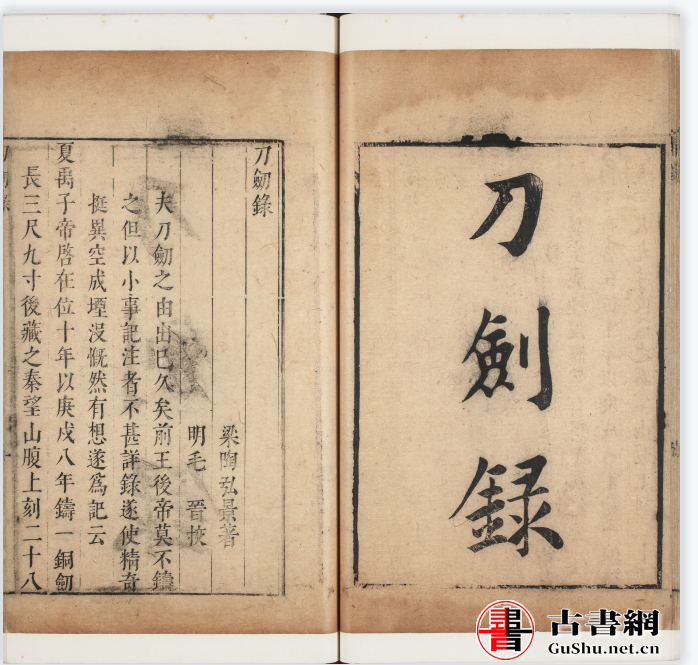 刀劍錄
刀劒錄
梁陶弘景著
明毛 晉挍
夫刀劒之由出已久矣前王後帝莫不鑄
之但以小事記注者不甚詳錄遂使精奇
挺異空成堙没慨然有想遂爲記云
夏禹子帝啓在位十年以庚戌八年鑄一銅劒
長三尺九寸後藏之秦望山腹上刻二十八
古書網
GuShu.net.cn